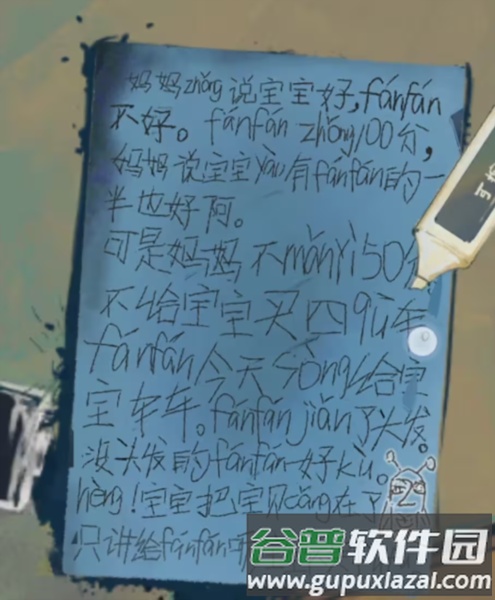 妈妈zhǎng说宝宝好,fánfán
不好。fánfán zhǒng100分,
妈妈说宝宝yào有fánfán的一
半也好阿。
可是妈妈不mǎnyì50分
不给宝宝买四qù车
fánfán今天sòng给宝
宝车车。fánfán jiǎn了头发。
没头发的fánfán好kù。
hèng!宝宝把宝贝cáng在了
只讲给fánfán听
谷普软件园
www.gupuxlazal.com